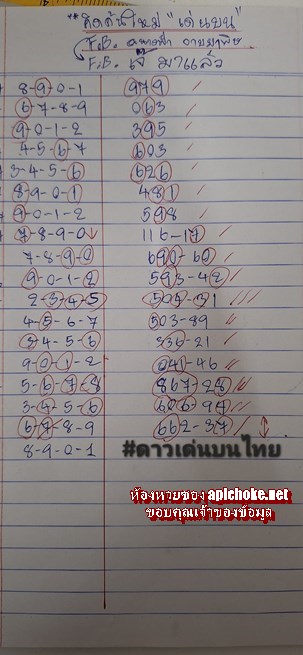 **คิดค้นใหม่ "เด่นบน"
F.B.
F.B. เจ๊ มาแล้ว
8-9-0-1 979
6-7-8-9 063
9-0-1-2 395
4-5-6-7 603
3-4-5-6 626
8-9-0-1 481
9-0-1-2 598
7-8-9-0 116-17
7-8-9-0 690-60
9-0-1-2 593-42
2-3-4-5 505-31
4-5-6-7 503-89
3-4-5-6 336-21
9-0-1-2 041-46
5-6-7-8 867-28
3-4-5-6 606-94
6-7-8-9 662-37
8-9-0-1
#ดาวเด่นบนไทย
ห้องหวยของ apichoke.net
ขอบคุณเจ้าของข้อมูล